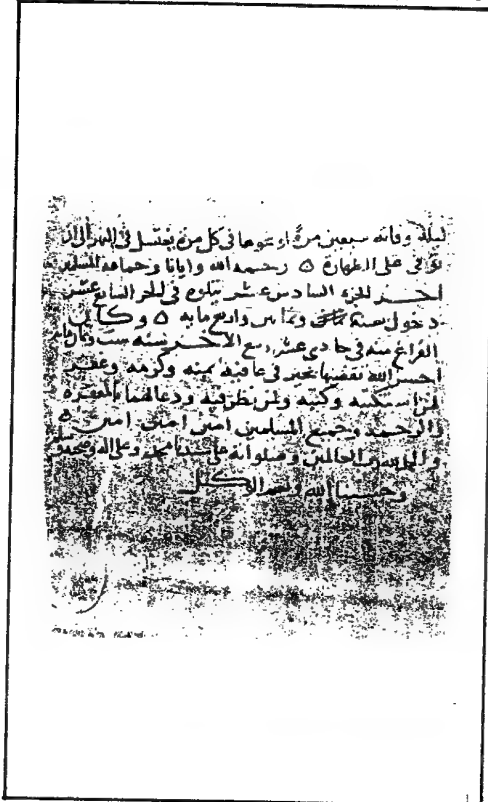 ليلة وفاته سبعين مرة او نحوها في كل مرة يغتسل في النهر الى ان
توفي على الطهارة ه رحمه الله وايانا وجماعة المسلمين
اخر الجزء السادس عشر يتلوه في الجزء السابع عشر
دخول سنة وثمانين واربع مايه ه وكان
الفراغ منه في حادي عشر ربيع الاخر سنه ست
احسن الله تقضيها بخير في عافية بمنه وكرمه وغفر
لمن استكتبه وكتبه ولمن نظر فيه ودعا لهما بالمغفرة
والرحمة ولجميع المسلمين امين امين امين ه
والحمد لله رب العالمين وصلواته على سيدنا محمد وعلى اله وصحبه
وحسبنا الله ونعم الوكيل